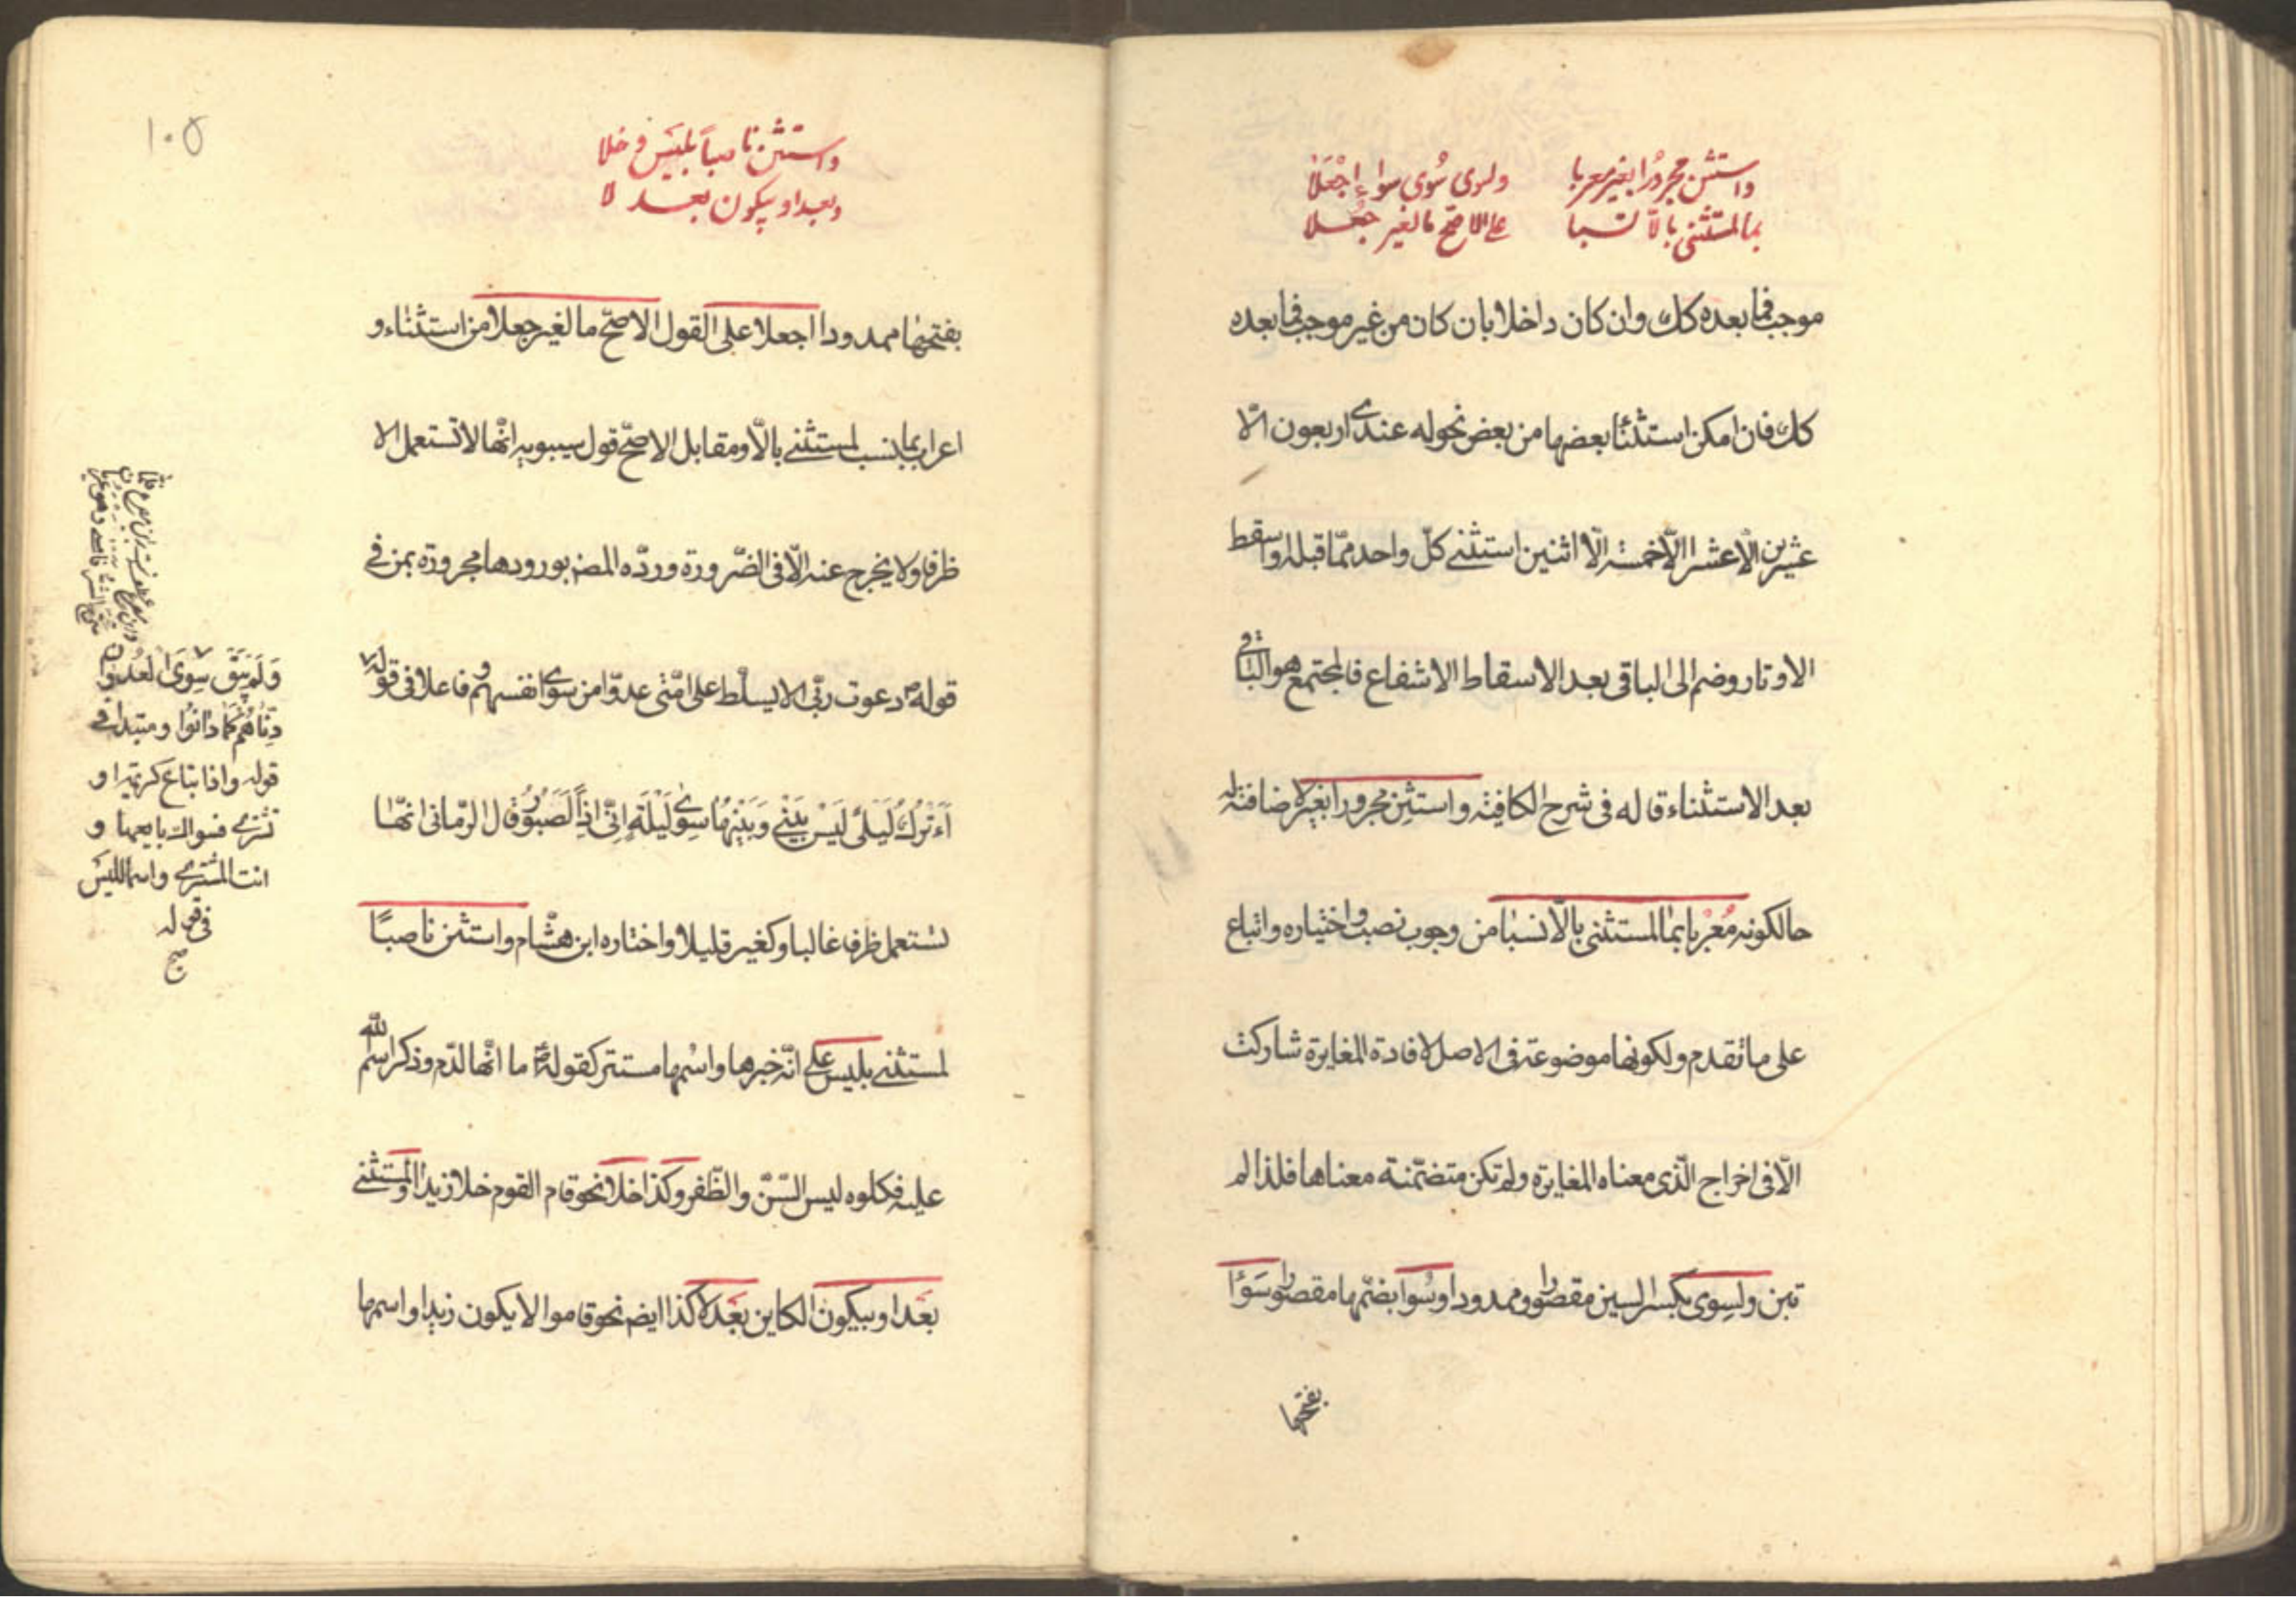 واستثن مجرورًا بغير معربا ولسوى سُوى سواءٍ اجْعَلَا
بما لمستثنى بالّا نسبا على الاصحّ ما لغير جُعلا
موجب فما بعده كك وان كان داخلا بان كان من غير موجب فما بعده
كك فان امكن استثنأ بعضها من بعض نحو له عندى اربعون الّا
عشرين الّا عشرا الّا خمسة الّا اثنين استثنى كلّ واحد ممّا قبله واسقط
الاوتار وضم الى الباقى بعد الاسقاط الاشفاع فالمجتمع هو الباقى
بعد الاستثناء قاله فى شرح الكافية واستثن مجرورا بغير لاضافته له
حالكونه مُعْربا بما لمستثنى بالّا نسبا من وجوب نصب واختياره واتباع
على ما تقدم ولكونها موضوعة فى الاصل لافادة المغايرة شاركت
الّا فى اخراج الّذى معناه المغايرة ولم تكن متضمّنة معناها فلذا لم
تبن ولسِوى بكسر السين مقصورا وممدودا وسُوا بضمّها مقصورا وسَوٰا
بفتحها
۱۰۵
واستثن ناصباً بليسَ وخلا
وبعدا وبيكون بعد لا
بفتحها ممدودا اجعلا على القول الاصحّ ما لغير جعلا من استثناء و
اعراب بما نسب لمستثنى بالّا ومقابل الاصحّ قول سيبويه انّها لا تستعمل الا
ظرفا ولا يخرج عنه الّا فى الضّرورة وردّه المصنف بورودها مجرورة بمن فى
قوله ص دعوت ربّى الا يسلّط على امّتى عدوّا من سوى انفسهم وفاعلا فى قوله
أَءَتْرُكُ لَيْلٰى لَيْسَ بَيْنِى وَبَيْنَهَا سِوٰى لَيْلَةٍ اِنّى اِذًا لَصَبُورُ وقال الرّمانى انّها
تستعمل ظرفا غالبا وكغير قليلا واختاره ابن هشام واستثن ناصبًا
لمستثنى بليس على انّه خبرها واسْمها مستتر كقوله ص ما انّها لدّم وذكر اسم الله
عليه فكلوه ليس السّنّ والظّفر وكذا خلا نحو قام القوم خلا زيدا والمستثنى
بعَدا وبيكون الكاين بَعْدَ لا كذا ايضا نحو قاموا لا يكون زيدا واسمها
وَلَم يَبْقَ سِوَى العُدْوَانِ
دِنّاهُم كَمَا دَانُوا ومبتدا فى
قوله واذا تباع كريمة او
تشترى فسواك بايعها و
انت المشترى واسما لليسَ
فى قوله
صح